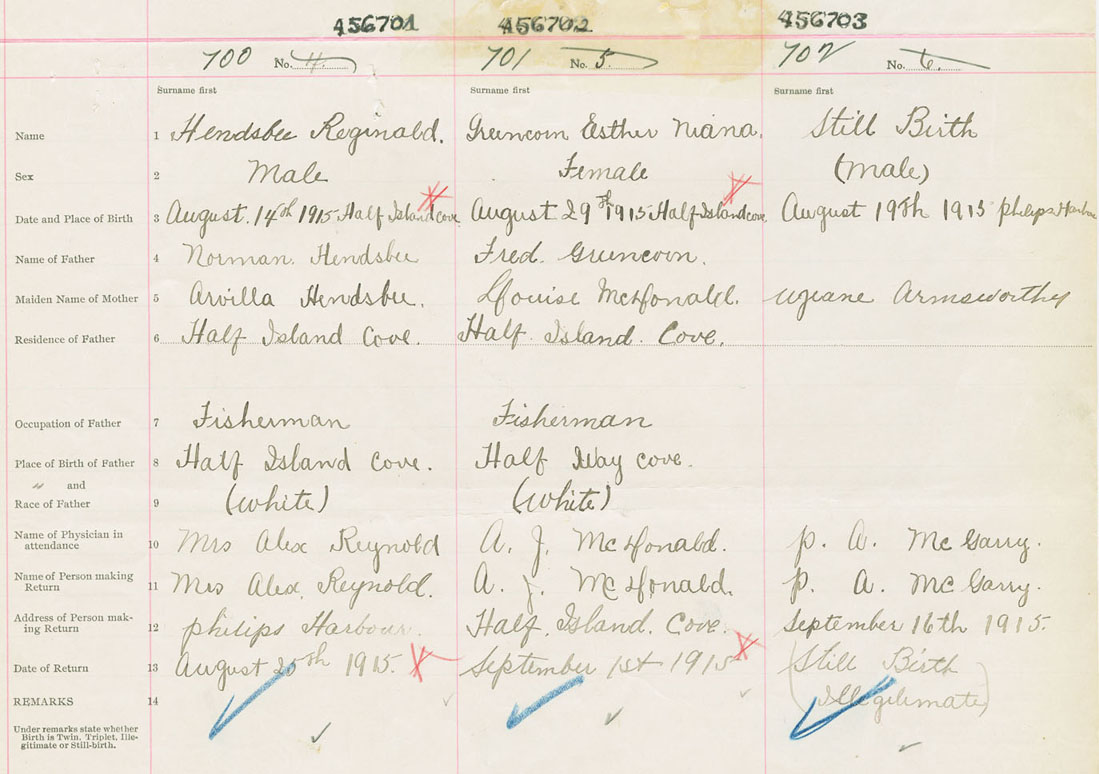 456701 456702 456703
700 No. 4. 701 No. 5. 702 No. 6.
Surname first Surname first Surname first
Name 1 Hendsbee Reginald. Gruncorn Esther Niana. Still Birth
Sex 2 Male Female (Male)
Date and Place of Birth 3 August. 14th 1915 Half Island cove August 29th 1915 Half Island cove August 19th 1915 philips Harbour
Name of Father 4 Norman. Hendsbee Fred. Gruncorn.
Maiden Name of Mother 5 Arvilla Hendsbee. Louise McDonald. Armsworthy
Residence of Father 6 Half Island Cove. Half Island. Cove.
Occupation of Father 7 Fisherman Fisherman
Place of Birth of Father 8 Half Island Cove. Half Way cove.
" and
Race of Father 9 (White) (White)
Name of Physician in
attendance 10 Mrs Alex Reynold A. J. McDonald. p. A. McGarry.
Name of Person making
Return 11 Mrs Alex. Reynold. A. J. McDonald. p. A. McGarry.
Address of Person mak-
ing Return 12 philips Harbour. Half. Island. Cove. September 16th 1915.
Date of Return 13 August 25th 1915. September 1st 1915 (Still Birth
REMARKS 14 Illegitimate)
Under remarks state whether
Birth is Twin, Triplet, Ille-
gitimate or Still-birth.